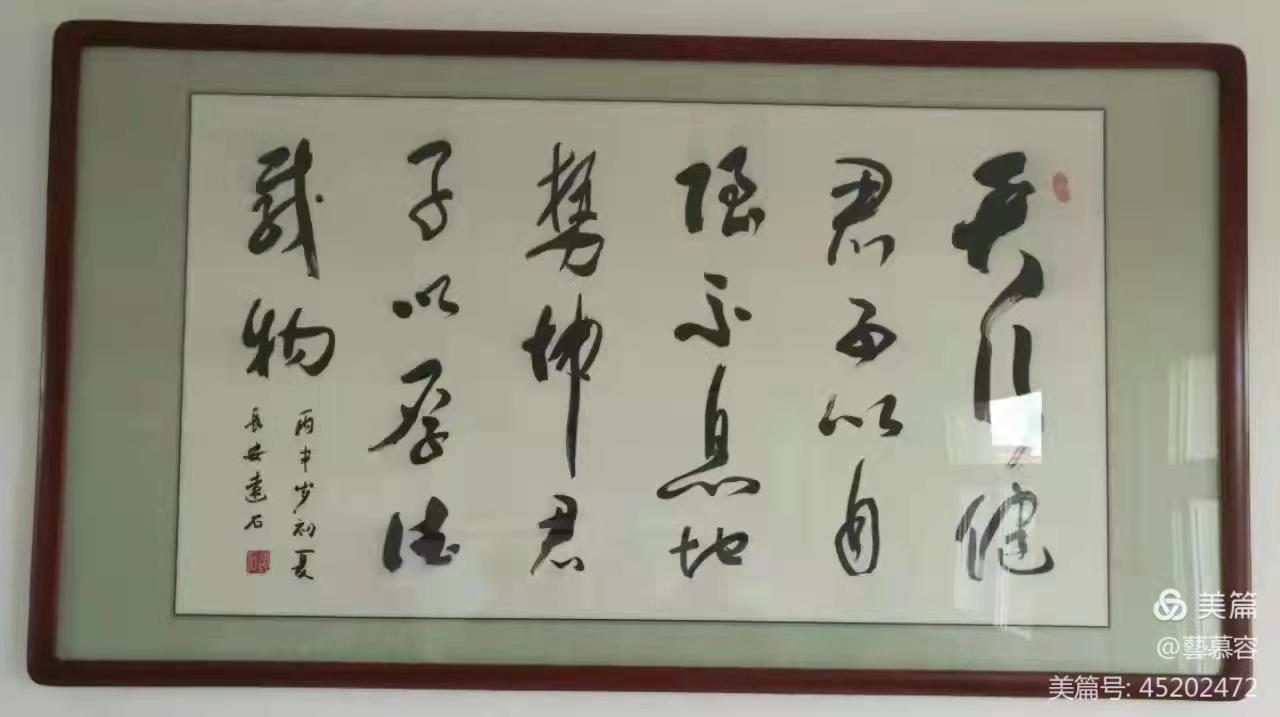 天行健
君子以自
強不息地
勢坤君
子以厚德
載物
丙申岁初夏
長安遠石
美篇
@藝慕容
美篇号: 45202472